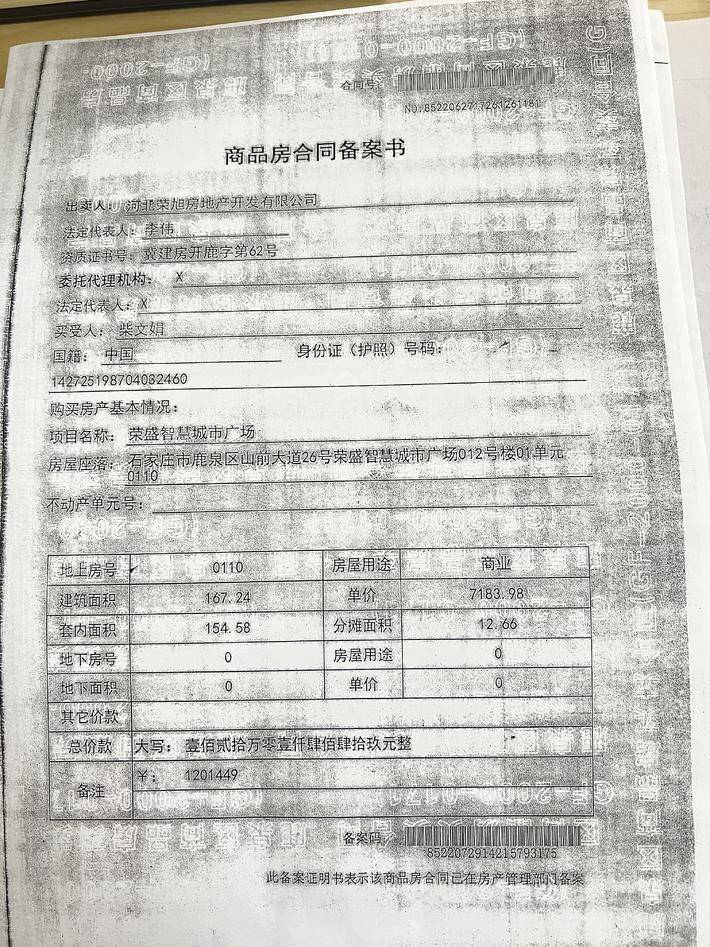 合同号
NO:8522062717261261181
商品房合同备案书
出卖人: 河北荣旭房地产开发有限公司
法定代表人: 李伟
资质证书号: 冀建房开鹿字第62号
委托代理机构: X
法定代表人: X
买受人: 柴文娟
国籍: 中国 身份证（护照）号码:
142725198704032460
购买房产基本情况:
项目名称: 荣盛智慧城市广场
房屋座落: 石家庄市鹿泉区山前大道26号荣盛智慧城市广场012号楼01单元
0110
不动产单元号:
地上房号 0110 房屋用途 商业
建筑面积 167.24 单价 7183.98
套内面积 154.58 分摊面积 12.66
地下房号 0 房屋用途 0
地下面积 0 单价 0
其它价款
总价款 大写: 壹佰贰拾万零壹仟肆佰肆拾玖元整
¥: 1201449
备注
备案码
8522072914215793175
此备案证明书表示该商品房合同已在房产管理部门备案